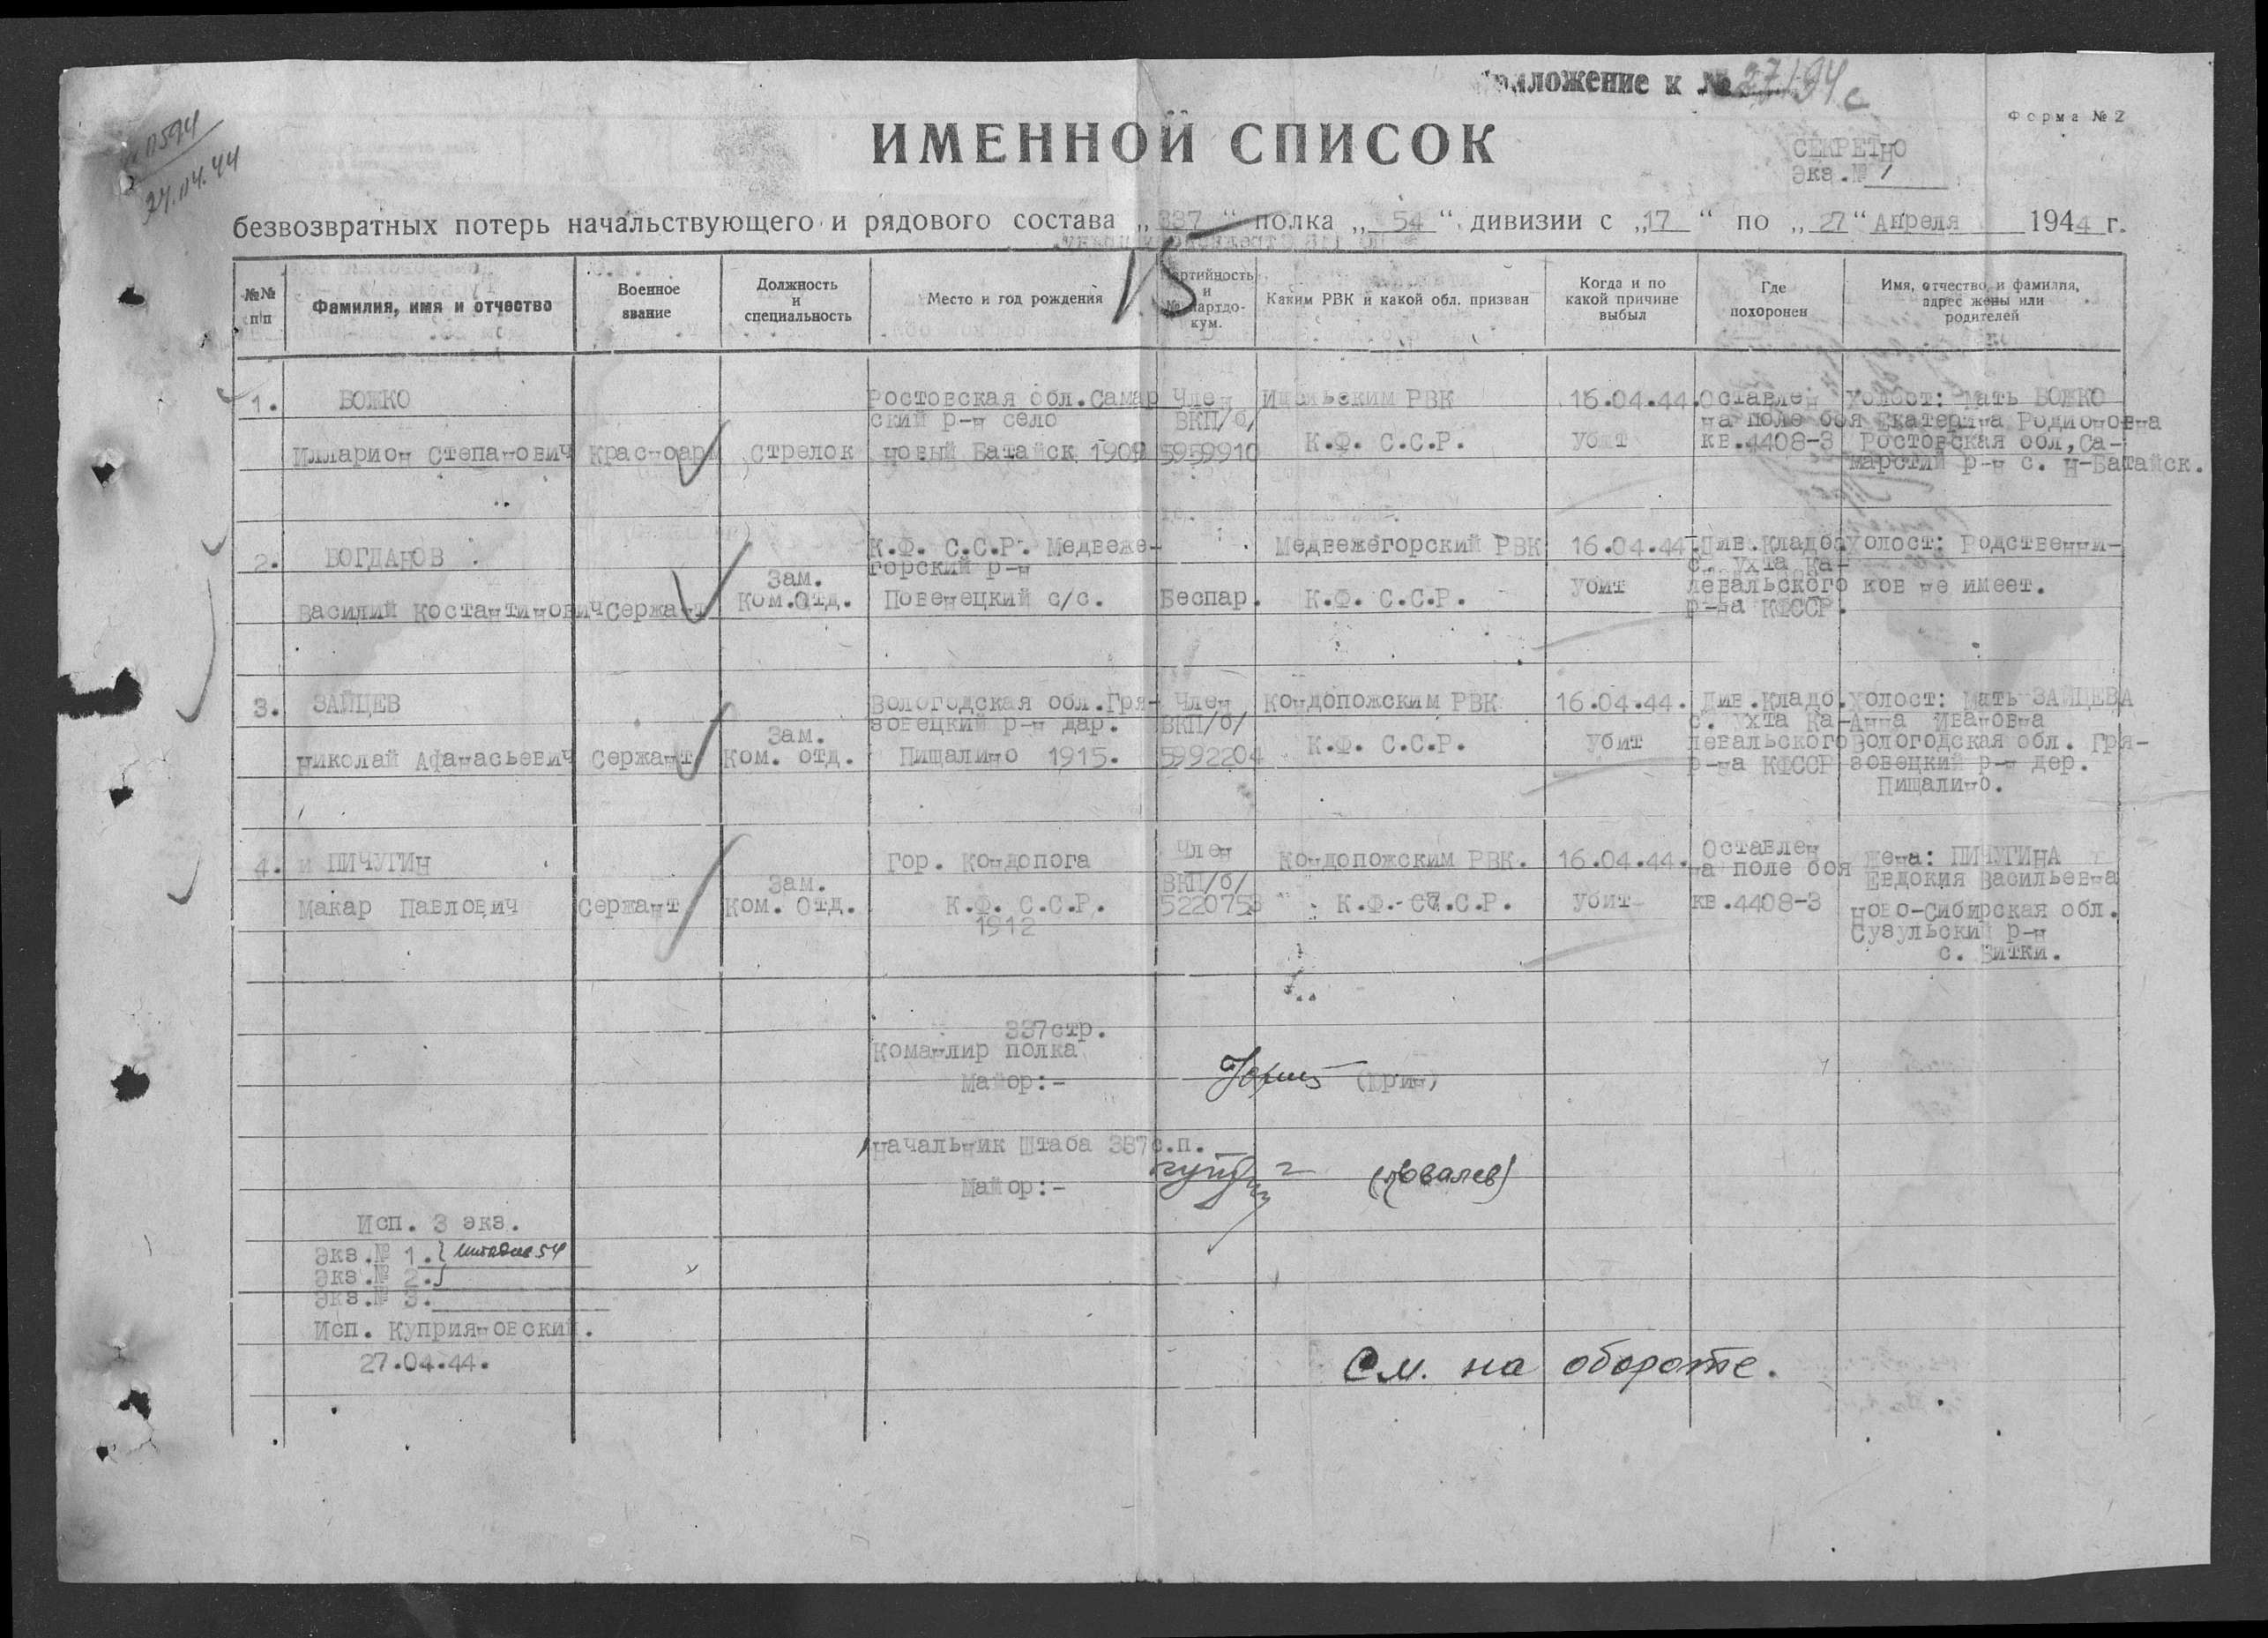 Приложение к № 27/94 с
Форма № 2
0594
27.04.44
ИМЕННОЙ СПИСОК
СЕКРЕТНО
Экз.№ 1
безвозвратных потерь начальствующего и рядового состава „337“ полка „54“ дивизии с „17“ по „27“ Апреля 1944 г.
15
№№ п/п
Фамилия, имя и отчество
Военное звание
Должность и специальность
Место и год рождения
Партийность и № партдокум.
Каким РВК и какой обл. призван
Когда и по какой причине выбыл
Где похоронен
Имя, отчество и фамилия, адрес жены или родителей
1.
БОЖКО
Илларион Степанович
Красноарм
Стрелок
Ростовская обл.Самар
ский р-н село
новый Батайск 1909
Член
ВКП/б/
5959910
РВК
К.Ф. С.С.Р.
16.04.44.
Убит
Оставлен
на поле боя
кв.4408-3
Холост: Мать БОЖКО
Екатерина Родионовна
Ростовская обл,Са-
марстий р-н с. Н-Батайск.
2.
БОГДАНОВ
Василий Костантинович
Сержант
Зам.
Ком.Отд.
К.Ф. С.С.Р. Медвеже-
горский р-н
Повенецкий с/с.
Беспар.
Медвежегорский РВК
К.Ф. С.С.Р.
16.04.44.
Убит
Див.кладб.
с. Ухта Ка-
левальского
р-на КФССР.
Холост: Родственни-
ков не имеет.
3.
ЗАЙЦЕВ
Николай Афанасьевич
Сержант
Зам.
Ком. отд.
Вологодская обл.Гря-
зовецкий р-н дар.
Пищалино 1915.
Член
ВКП/б/
5992204
Кондопожским РВК
К.Ф. С.С.Р.
16.04.44.
Убит
Див.кладо.
с. Ухта Ка-
левальского
р-на КФССР
Холост: Мать ЗАЙЦЕВА
Анна Ивановна
Вологодская обл. Гря-
зовецкий р-н дер.
Пищалино.
4.
и ПИЧУГИН
Макар Павлович
Сержант
Зам.
Ком. Отд.
Гор. Кондопога
К.Ф. С.С.Р.
1912
Член
ВКП/б/
5220753
Кондопожским РВК.
К.Ф. С.С.Р.
16.04.44.
Убит
Оставлен
на поле боя
кв.4408-3
Жена: ПИЧУГИНА
Евдокия Васильевна
Ново-Сибирская обл.
Сузульский р-н
с. Битки.
337стр.
Командир полка
Майор:- (Юрин)
Начальник Штаба 337с.п.
Майор:- (Ковалев)
Исп. 3 экз.
Экз.№ 1.
Экз.№ 2.
Экз.№ 3.
Исп. Куприяновский.
27.04.44.
См. на обороте.